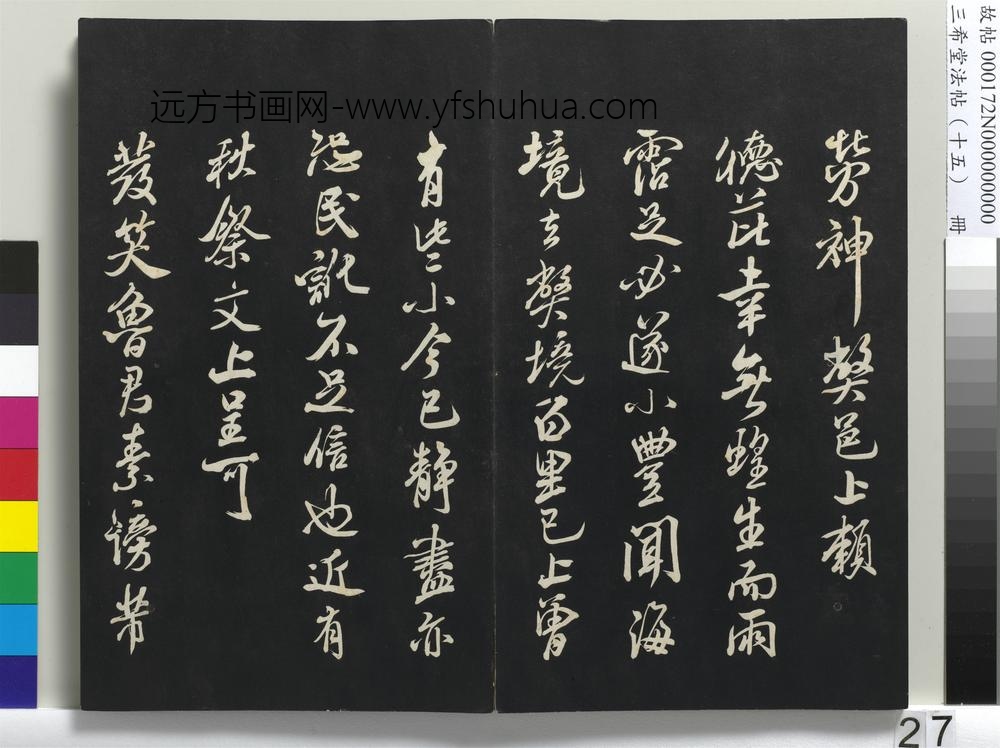 故帖 000172N000000000
三希堂法帖（十五） 冊
远方书画网-www.yfshuhua.com
勞神 獘邑上賴
德芘幸無蝗生而雨
霑足必遂小豐聞海
境去獘境百里已上曾
有些二小今已靜盡亦
恐民訛不足信也近有
秋祭文上呈可
發笑魯君素謗芾
27